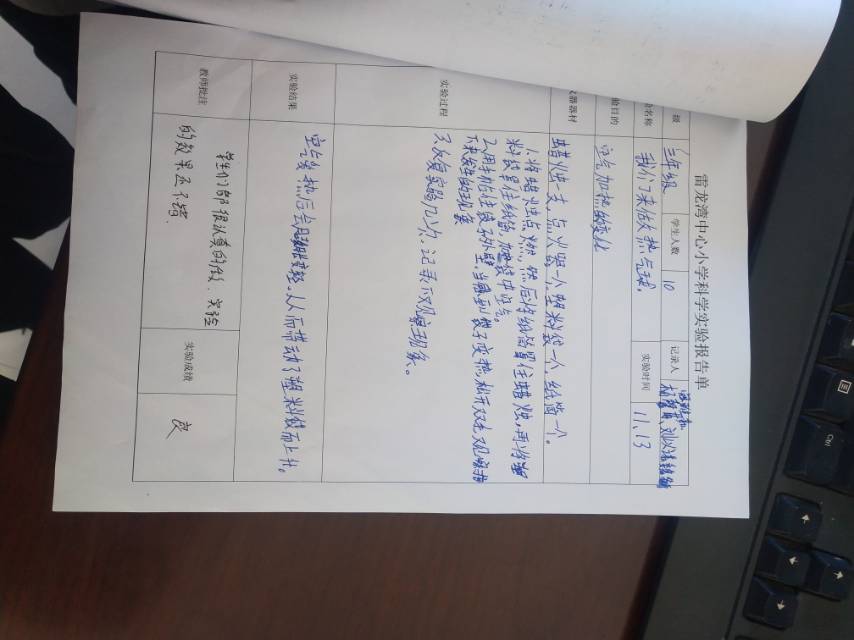 雷龙湾中心小学科学实验报告单
级 三年级 学生人数 10 记录人
验名称 我们来做热气球。 实验时间 11.13
验目的 空气加热的变化
仪器器材 蜡烛一支,点火器一个,塑料袋一个,纸筒一个。
实验过程
1.将蜡烛点燃,然后将纸筒罩住蜡烛,再将塑
料袋罩住纸筒,加热袋中空气。
2.用手扶住袋子外壁,当感到袋子变热,松开双手观察接
下来发生的现象
3.反复实验几次,记录下观察现象。
实验结果 空气受热后会变轻,从而带动了塑料袋而上升。
教师批注 学生们都很认真的做、实验
的效果还不错。
实验成绩 良
Ctrl